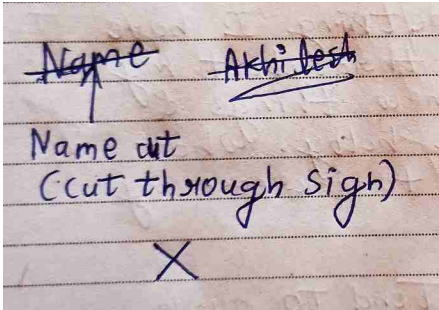 Name Akhilesh
Name cut
(Cut through Sign)
X